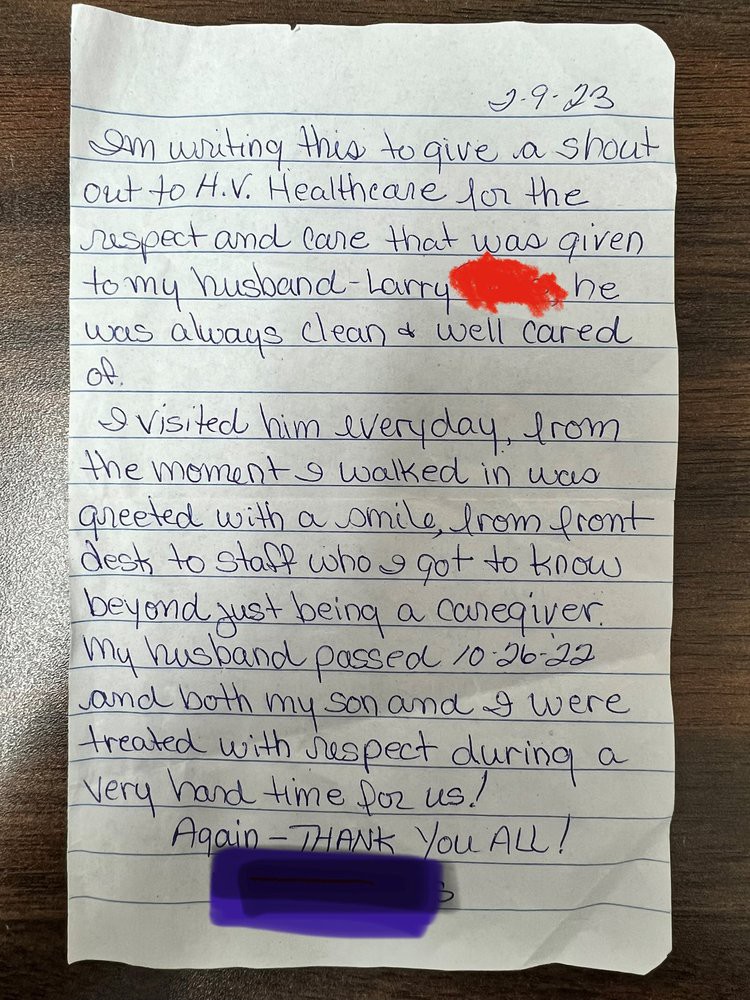 2-9-23
Im writing this to give a shout
out to H.V. Healthcare for the
respect and care that was given
to my husband-Larry , he
was always clean & well cared
of.
I visited him everyday, from
the moment I walked in was
greeted with a smile, from front
desk to staff who I got to know
beyond just being a caregiver.
My husband passed 10-26-22
and both my son and I were
treated with respect during a
very hard time for us!
Again-THANK YOU ALL!